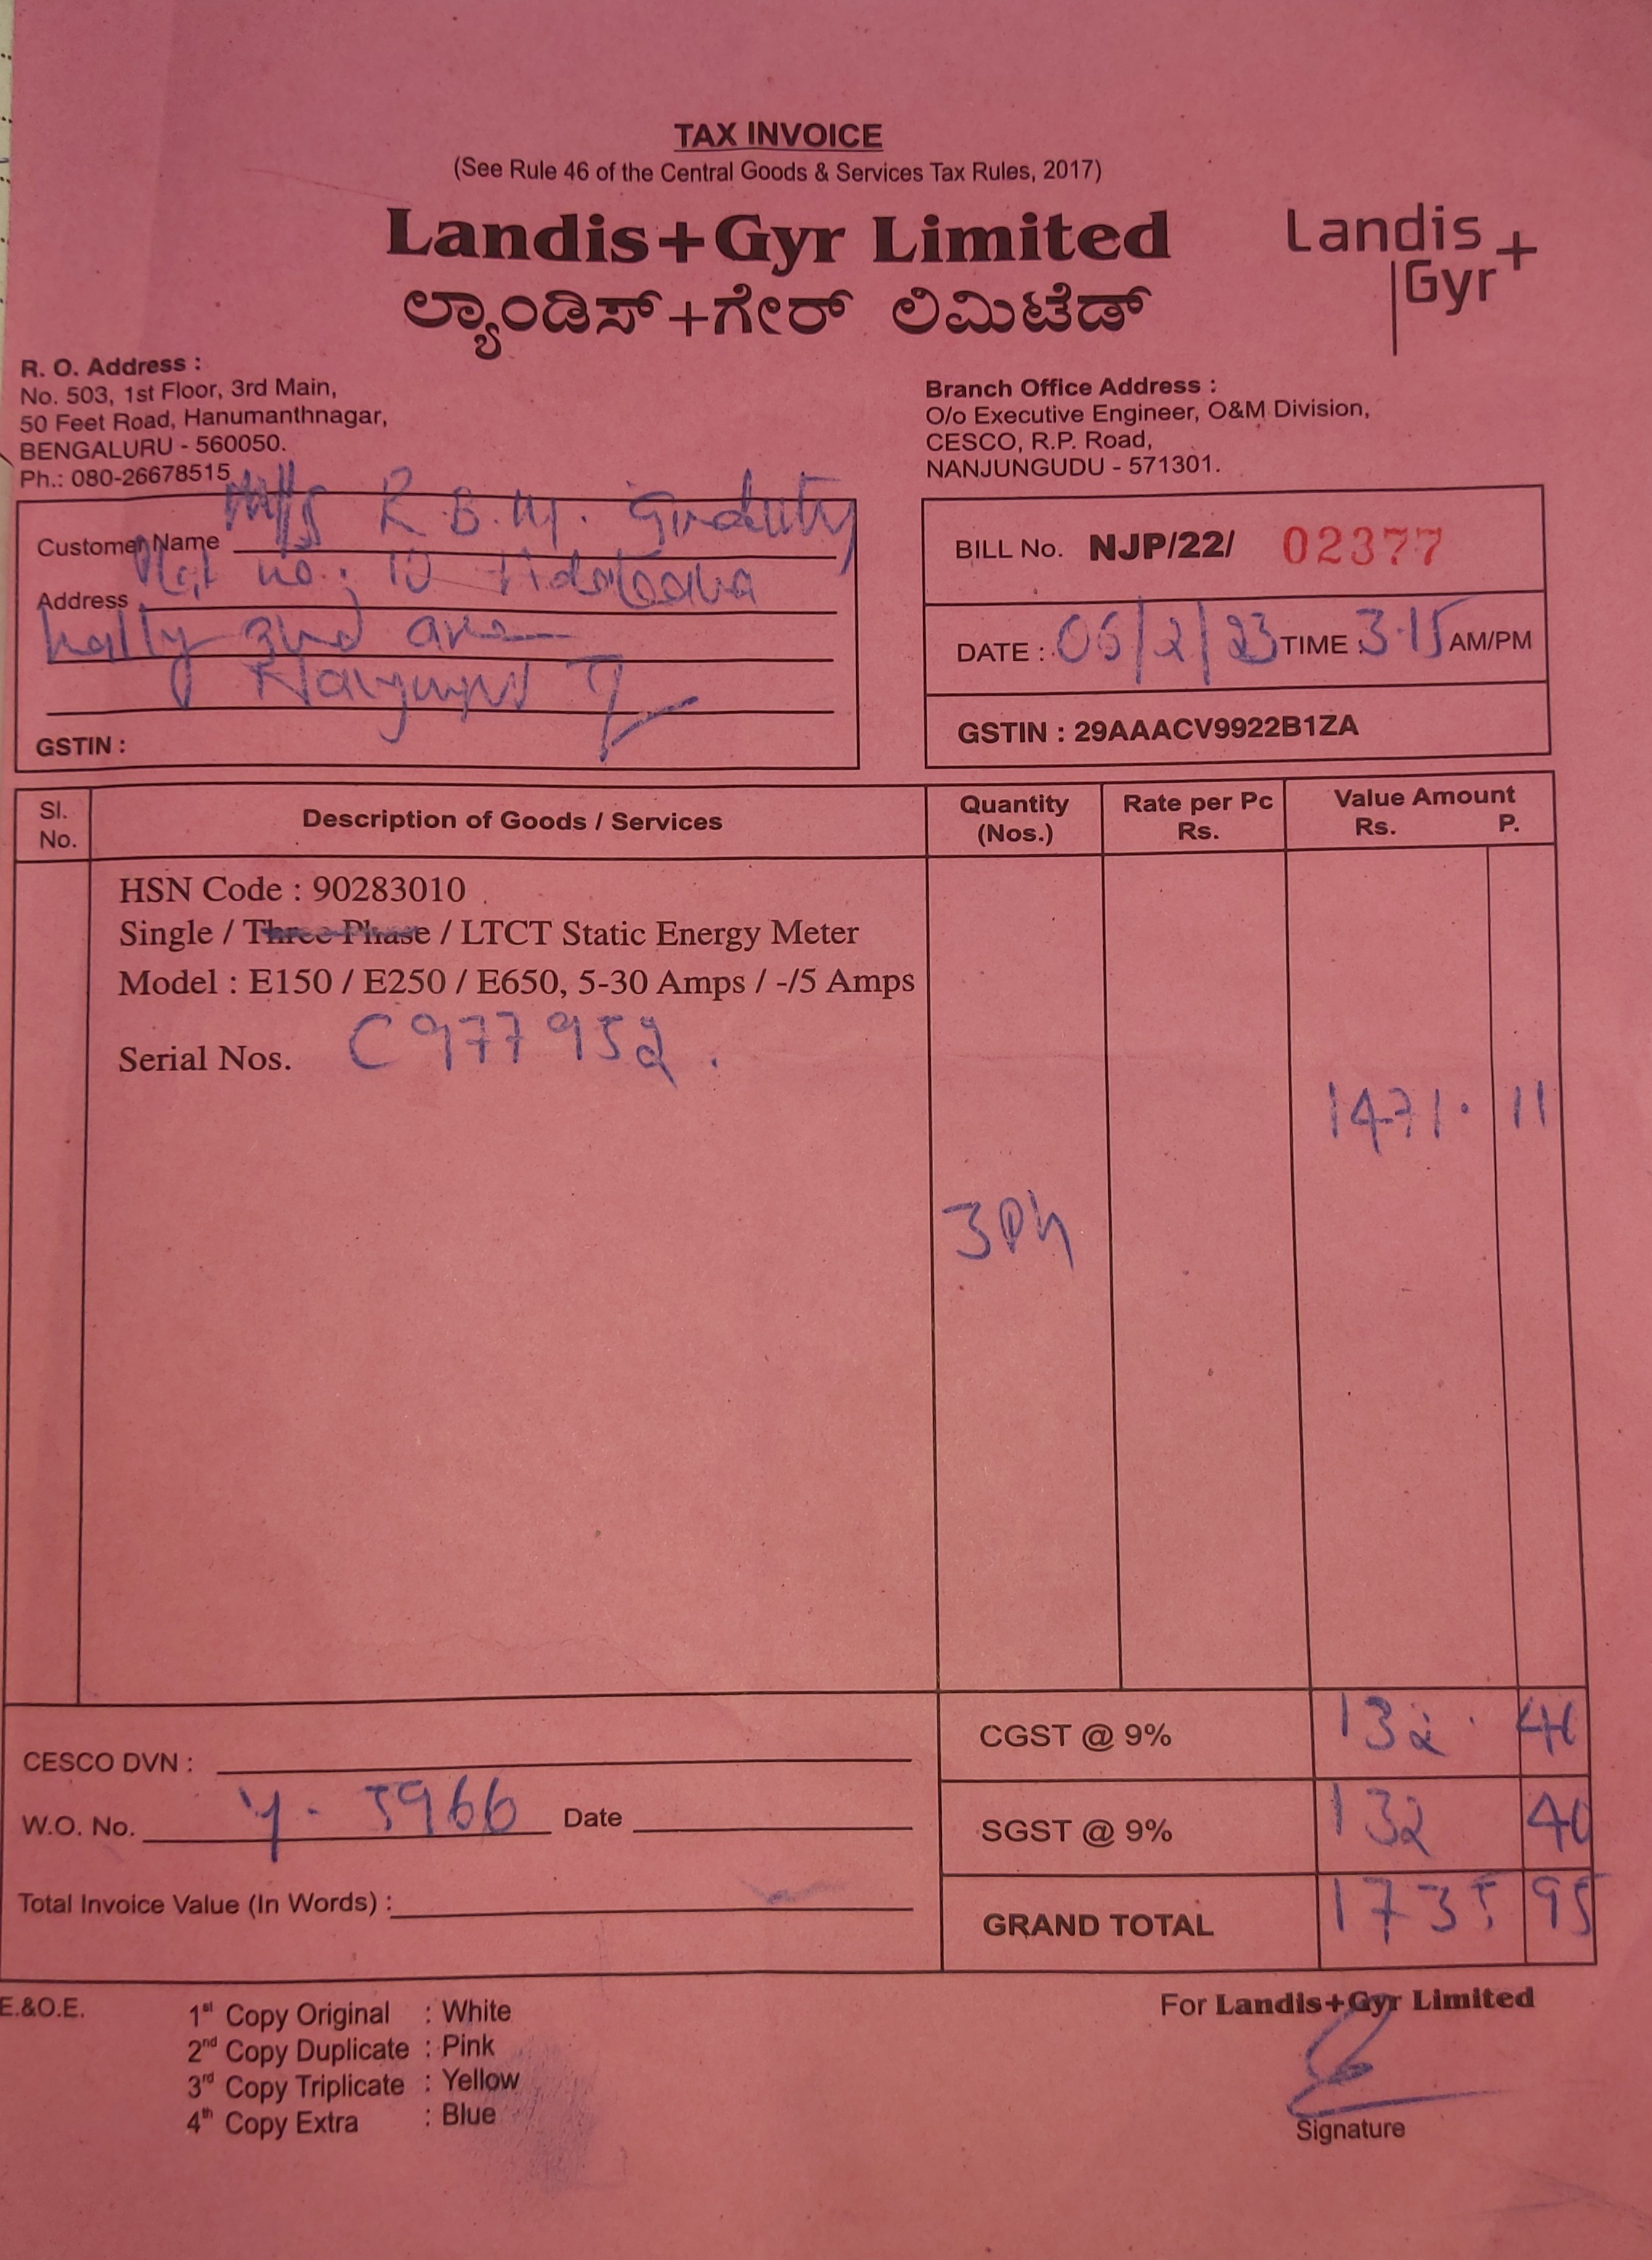 TAX INVOICE
(See Rule 46 of the Central Goods & Services Tax Rules, 2017)
Landis+Gyr Limited
ಲ್ಯಾಂಡಿಸ್+ಗೇರ್ ಲಿಮಿಟೆಡ್
Landis
Gyr+
R. O. Address :
No. 503, 1st Floor, 3rd Main,
50 Feet Road, Hanumanthnagar,
BENGALURU - 560050.
Ph.: 080-26678515
Branch Office Address :
O/o Executive Engineer, O&M Division,
CESCO, R.P. Road,
NANJUNGUDU - 571301.
Customer Name M/s R.B.M.
Address no. 10
hally 2nd
GSTIN :
BILL No. NJP/22/ 02377
DATE : 06/2/23 TIME : 3.15 AM/PM
GSTIN : 29AAACV9922B1ZA
Sl. No. Description of Goods / Services Quantity (Nos.) Rate per Pc Rs. Value Amount Rs. P.
HSN Code : 90283010
Single / Three Phase / LTCT Static Energy Meter
Model : E150 / E250 / E650, 5-30 Amps / -/5 Amps
Serial Nos. C977952.
1471. 11
3Ph
CGST @ 9% 132. 40
CESCO DVN :
W.O. No. 5966 Date
SGST @ 9% 132 40
Total Invoice Value (In Words) :
GRAND TOTAL 1735 95
E.&O.E.
1st Copy Original : White
2nd Copy Duplicate : Pink
3rd Copy Triplicate : Yellow
4th Copy Extra : Blue
For Landis+Gyr Limited
Signature